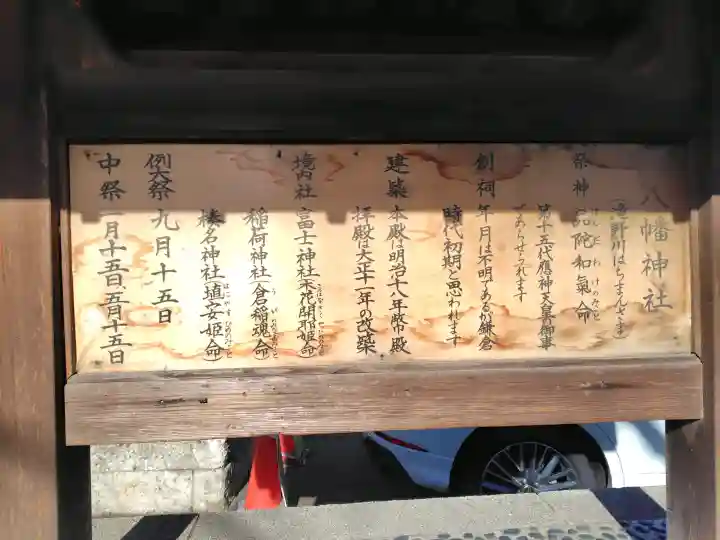 八幡神社
(滝野川はちまんさま)
祭神 品陀和氣命
ほんだわけのみこと
第十五代應神天皇御事
であらせられます
創祠 年月は不明であるが鎌倉
時代初期と思われます
建築 本殿は明治十八年幣殿
拝殿は大正十一年の改築
境内社 富士神社(木花開耶姫命)
稲荷神社(倉稲魂命)
榛名神社(埴安姫命)
はにやすひめのみこと
例大祭 九月十五日
中祭 一月十五日、五月十五日